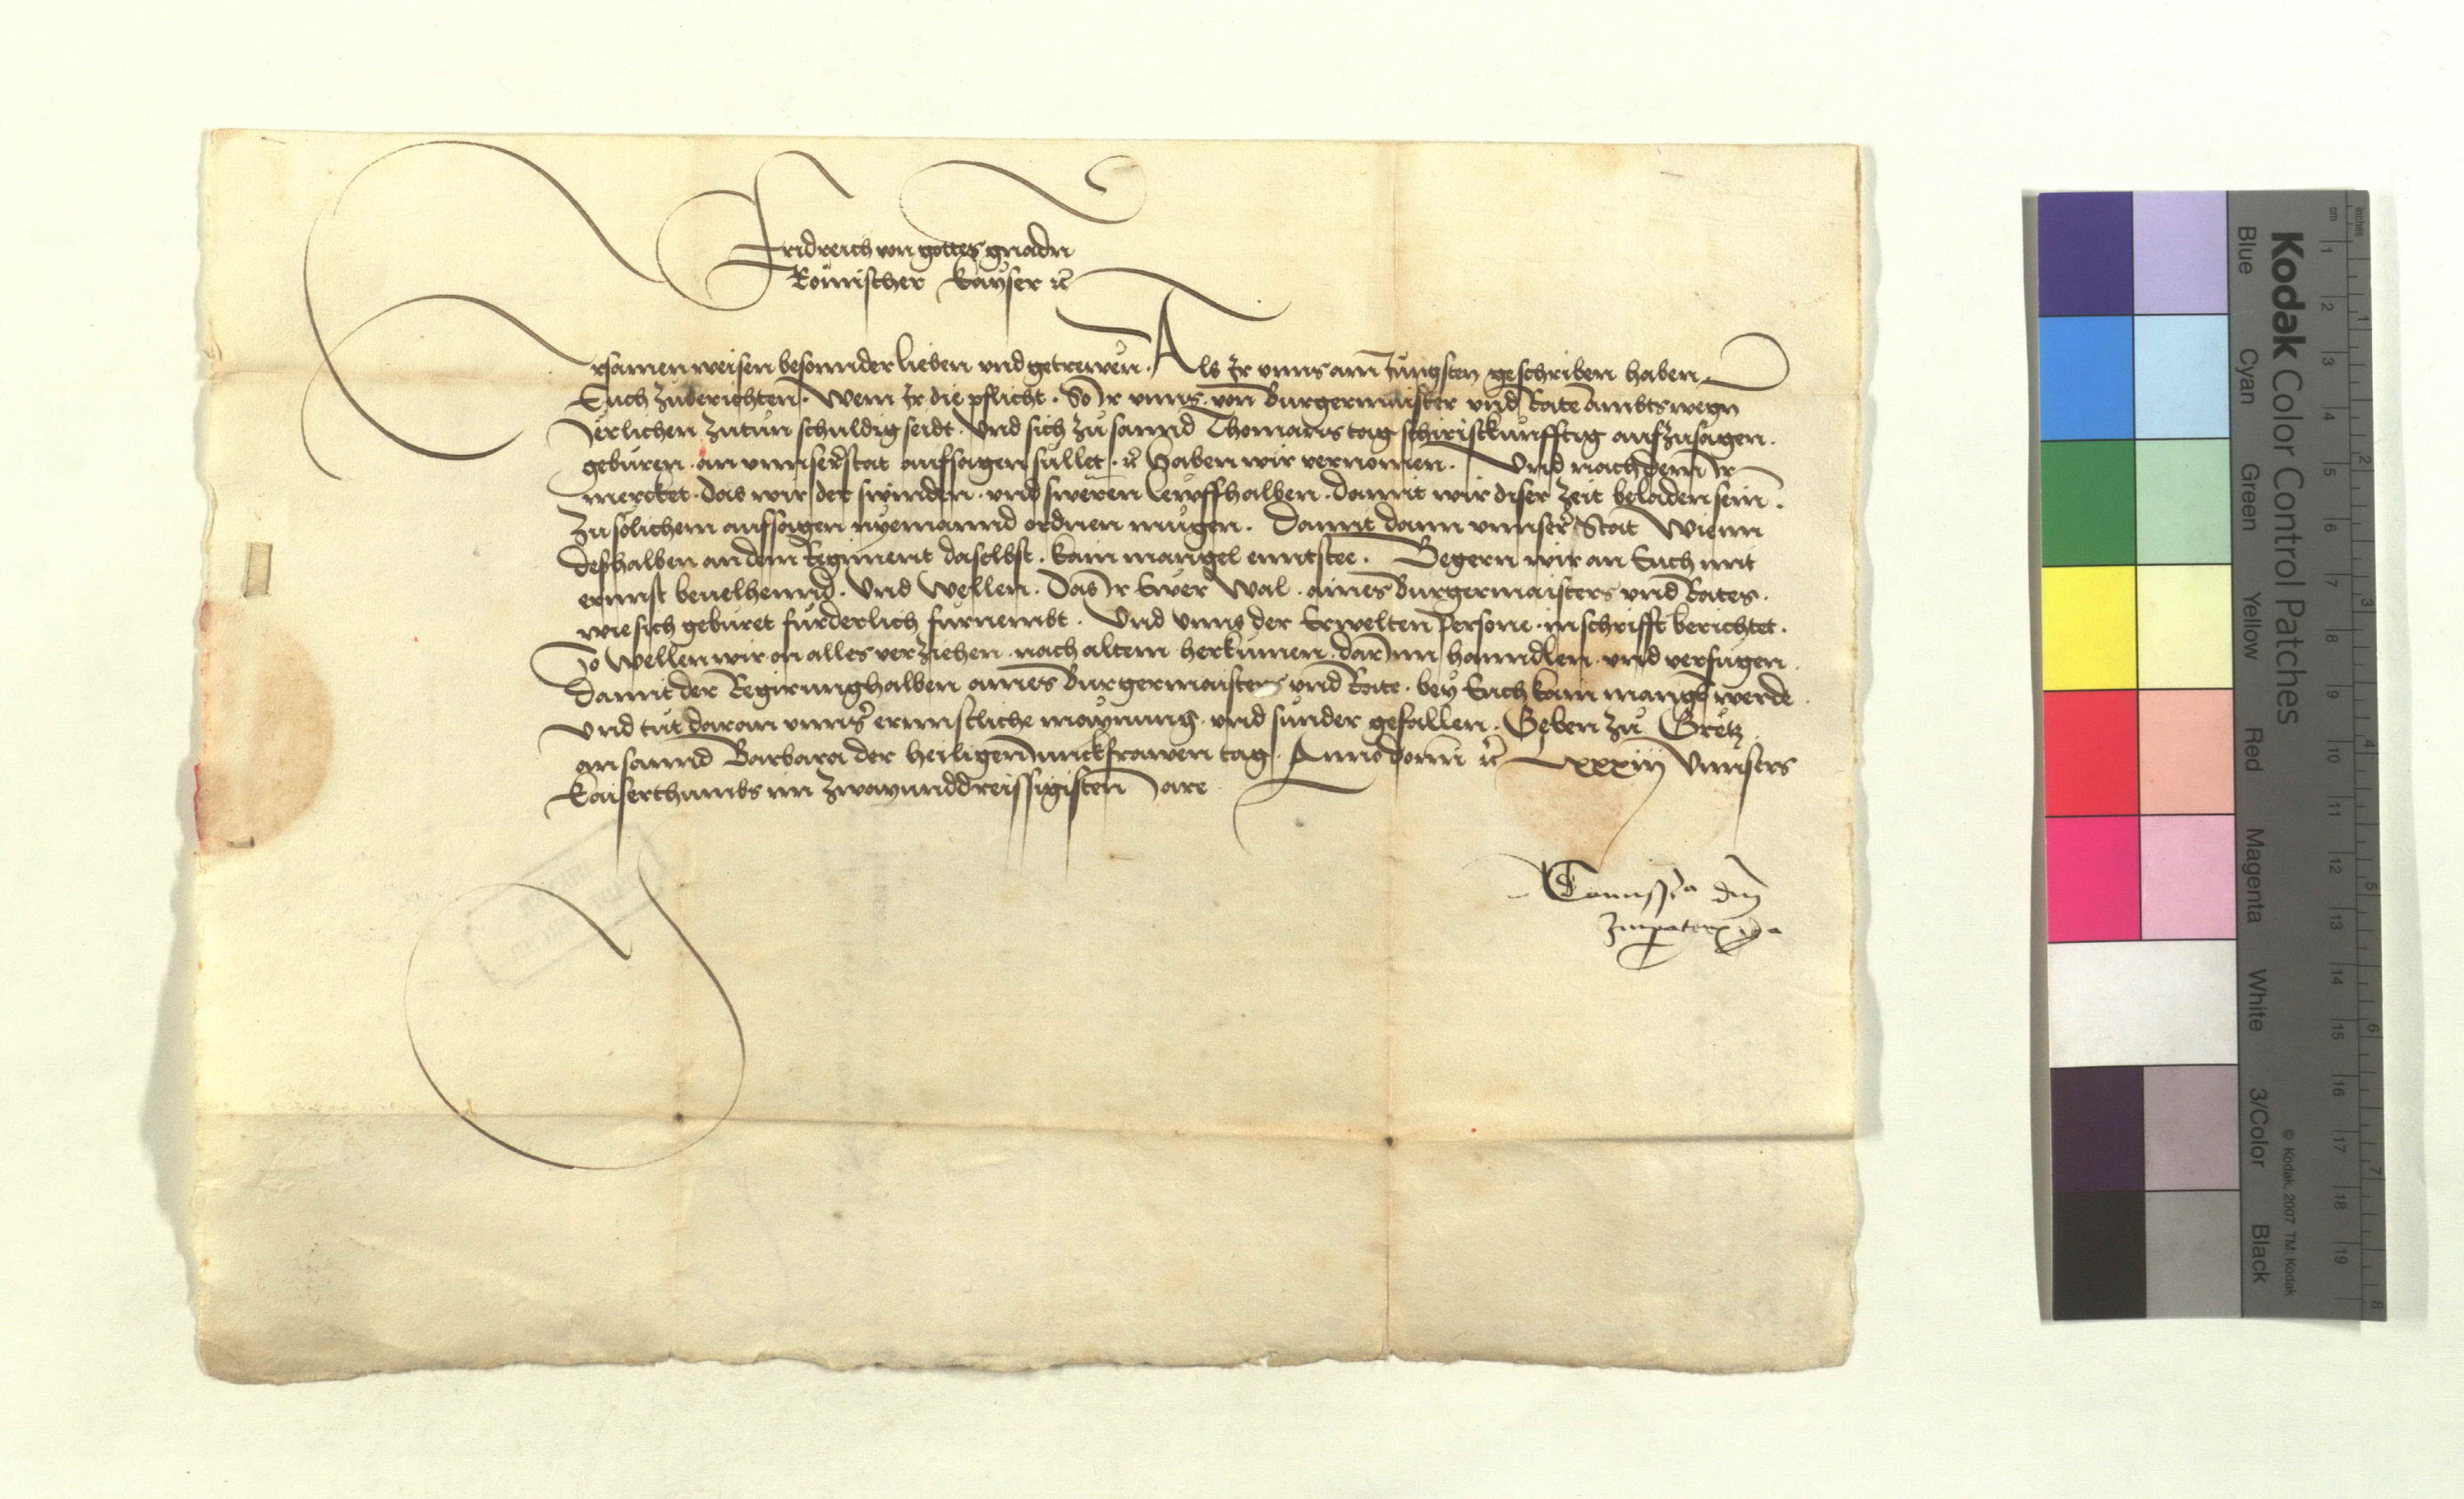 Fridreich von gottes gnadn
Römischer kayser ꝛc̄
Ersamen weisen besonnder lieben vnd getrewen. Als Ir vnns am Jungsten geschriben haben
Euch zuberichten. Wem Ir die pflicht. So Ir vnns. von Burgermaister vnd Rate ambtswegn
Jerlichen zutun schuldig seidt. Vnd sich zu sannd Thomans tag schiristkunfftig aufzusagen.
geburen. an vnnser stat aufsagen sullet. ꝛc̄ Haben wir vernomen. Vnd nachdem Ir
mercket. das wir der swinden. vnd sweren lewffhalben. damit wir diser zeit beladen sein.
zu solichem aufsagen nyemannd ordnen mugen. Damit dann vnnser Stat Wienn
deshalben an dem Regiment daselbst. kain mangel enntstee. Begern wir an Euch mit
ernnst beuelhennd. Vnd wellen. Das Ir Ewer Wal. aines Burgermaisters vnd Rates.
wie sich geburet furderlich furnembt. Vnd vnns der Erwelten persone. in schrifft berichtet.
So wellen wir on alles verziehen. nach altem herkumen. darInn hanndlen. vnd verfugen.
damit der Regirung halben aines Burgermaisters vnd Rate. bey Euch kain mangl werde.
Vnd tut daran vnnser ernnstliche maynung. vnd sunder gefallen. Geben zu Gretz.
an sannd Barbara der heiligen Junckfrawen tag. Anno domini ꝛc̄ Lxxxiij Vnnsers
kaiserthumbs im zwayunddreissigisten Jare
Comissio dni
Imperatoris
Kodak Color Control Patches
Blue Cyan Green Yellow Red Magenta White 3/Color Black
© Kodak, 2007 TM: Kodak
cm 1 2 3 4 5 6 7 8 9 10 11 12 13 14 15 16 17 18 19
inches 1 2 3 4 5 6 7 8